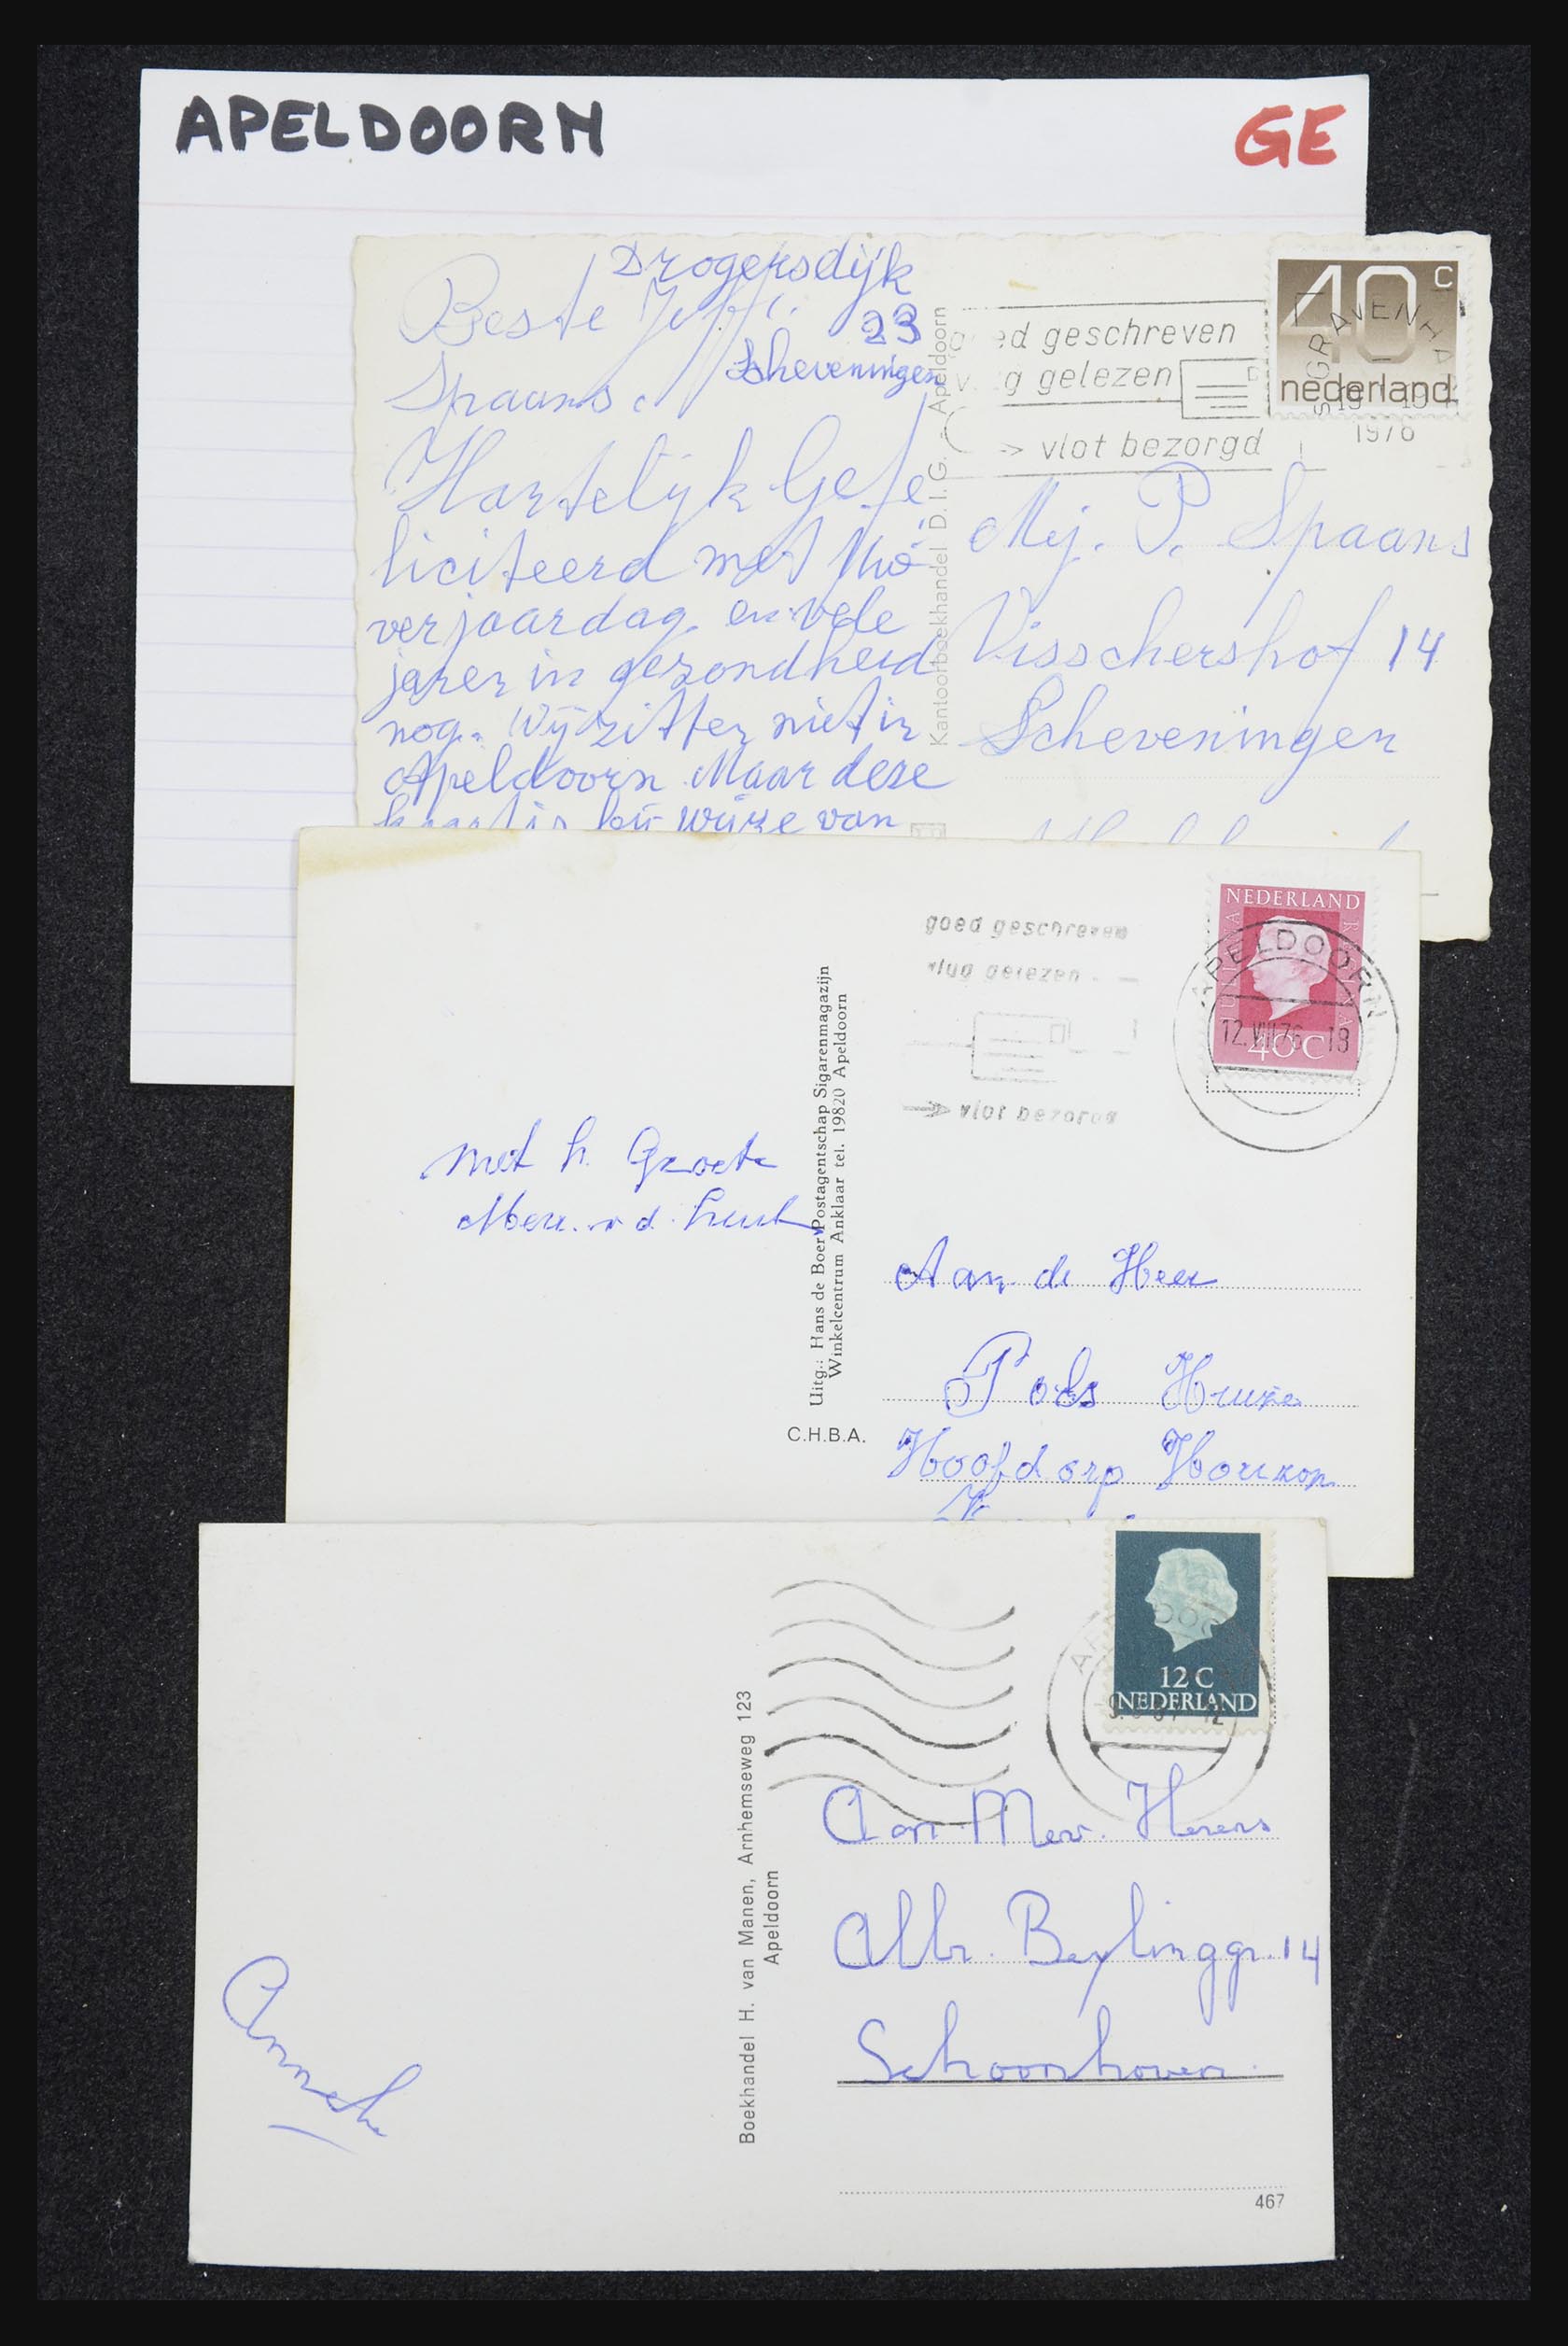 APELDOORN
GE
Drogersdijk
23
Scheveningen
Beste
Spaans.
Hartelijk Gefe
liciteerd met
verjaardag en vele
jaren in gezondheid
nog. Wij zitten niet in
Apeldoorn Maar deze
kaart is bij wijze van
Kantoorboekhandel D.I.G. - Apeldoorn
ed geschreven
g gelezen
-> vlot bezorgd
40 c
nederland
'S GRAVENHA
1976
Mej. P. Spaans
Visschershof 14
Scheveningen
goed geschreven
vlug gelezen
vlot bezorgd
NEDERLAND
JULIANA REGINA
40 C
APELDOORN
12.VIII.76 -18
met h. Groete
Uitg.: Hans de Boer Postagentschap Sigarenmagazijn
Winkelcentrum Anklaar tel. 19820 Apeldoorn
C.H.B.A.
Aan de Heer
Hoofdorp
12 C
NEDERLAND
Boekhandel H. van Manen, Arnhemseweg 123
Apeldoorn
Aan Mev. Herens
Albr. Beylinggr. 14
Schoonhoven
467